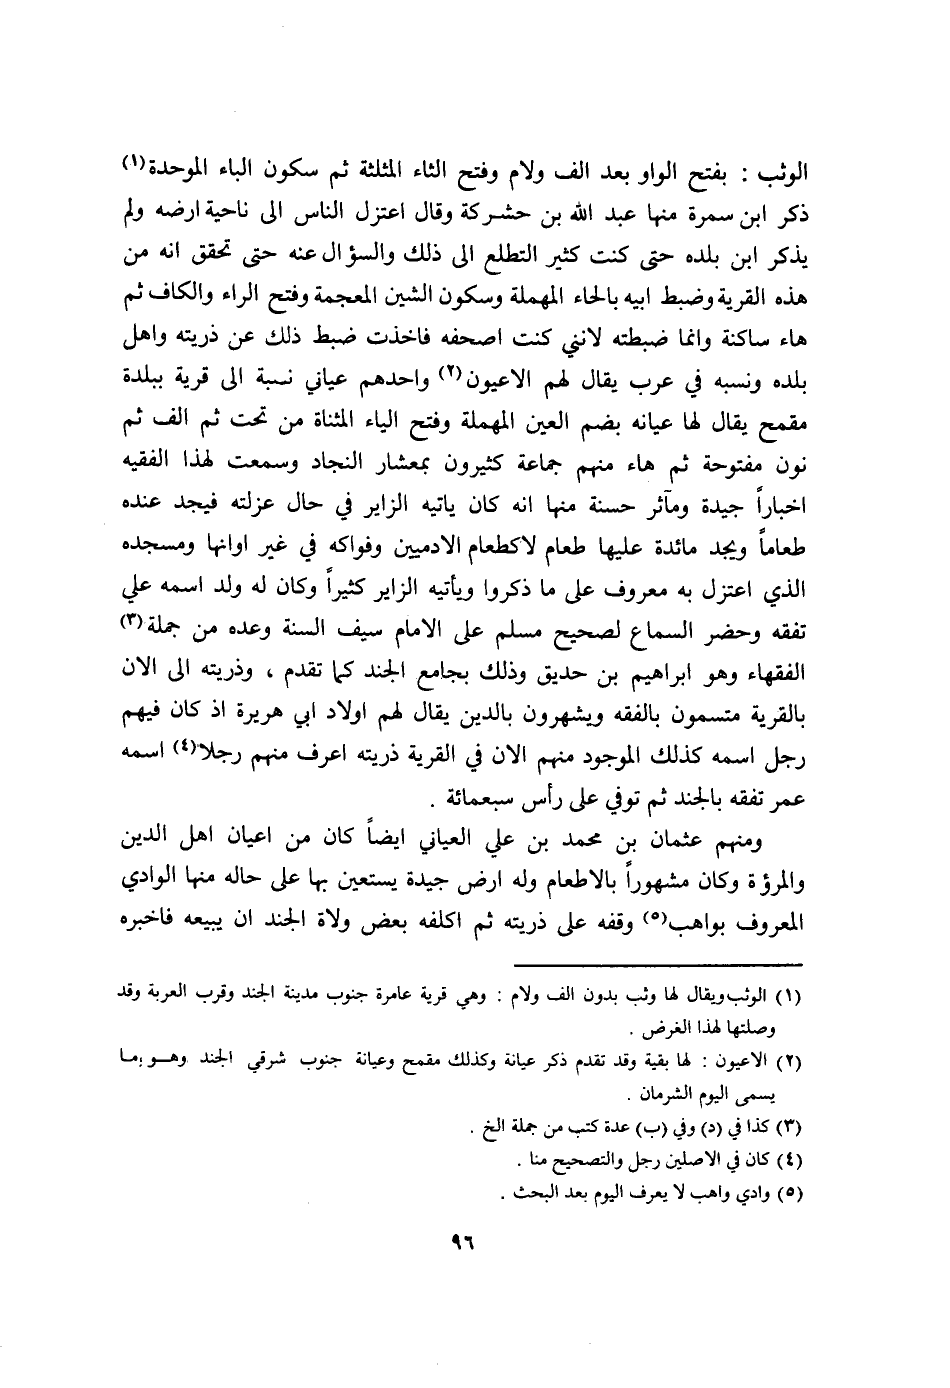 الوثب : بفتح الواو بعد الف ولام وفتح الثاء المثلثة ثم سكون الباء الموحدة(١)
ذكر ابن سمرة منها عبد الله بن حشركة وقال اعتزل الناس الى ناحية ارضه ولم
يذكر ابن بلده حتى كنت كثير التطلع الى ذلك والسؤال عنه حتى تحقق انه من
هذه القرية وضبط ابيه بالحاء المهملة وسكون الشين المعجمة وفتح الراء والكاف ثم
هاء ساكنة وانما ضبطته لانني كنت اصحفه فاخذت ضبط ذلك عن ذريته واهل
بلده ونسبه في عرب يقال لهم الاعيون(٢) واحدهم عياني نسبة الى قرية ببلدة
مقمح يقال لها عيانه بضم العين المهملة وفتح الياء المثناة من تحت ثم الف ثم
نون مفتوحة ثم هاء منهم جماعة كثيرون بمعشار النجاد وسمعت لهذا الفقيه
اخباراً جيدة ومآثر حسنة منها انه كان ياتيه الزاير في حال عزلته فيجد عنده
طعاماً ويجد مائدة عليها طعام لاكطعام الادميين وفواكه في غير اوانها ومسجده
الذي اعتزل به معروف على ما ذكروا ويأتيه الزاير كثيراً وكان له ولد اسمه علي
تفقه وحضر السماع لصحيح مسلم على الامام سيف السنة وعده من جملة(٣)
الفقهاء وهو ابراهيم بن حديق وذلك بجامع الجند كما تقدم ، وذريته الى الان
بالقرية متسمون بالفقه ويشهرون بالدين يقال لهم اولاد ابي هريرة اذ كان فيهم
رجل اسمه كذلك الموجود منهم الان في القرية ذريته اعرف منهم رجلا(٤) اسمه
عمر تفقه بالجند ثم توفي على رأس سبعمائة .
ومنهم عثمان بن محمد بن علي العياني ايضاً كان من اعيان اهل الدين
والمرؤة وكان مشهوراً بالاطعام وله ارض جيدة يستعين بها على حاله منها الوادي
المعروف بواهب(٥) وقفه على ذريته ثم اكلفه بعض ولاة الجند ان يبيعه فاخبره
(١) الوثب ويقال لها وثب بدون الف ولام : وهي قرية عامرة جنوب مدينة الجند وقرب العربة وقد
وصلتها لهذا الغرض .
(٢) الاعيون : لها بقية وقد تقدم ذكر عيانة وكذلك مقمح وعيانة جنوب شرقي الجند وهو بما
يسمى اليوم الشرمان .
(٣) كذا في (د) وفي (ب) عدة كتب من جملة الخ .
(٤) كان في الاصلين رجل والتصحيح منا .
(٥) وادي واهب لا يعرف اليوم بعد البحث .
٩٦